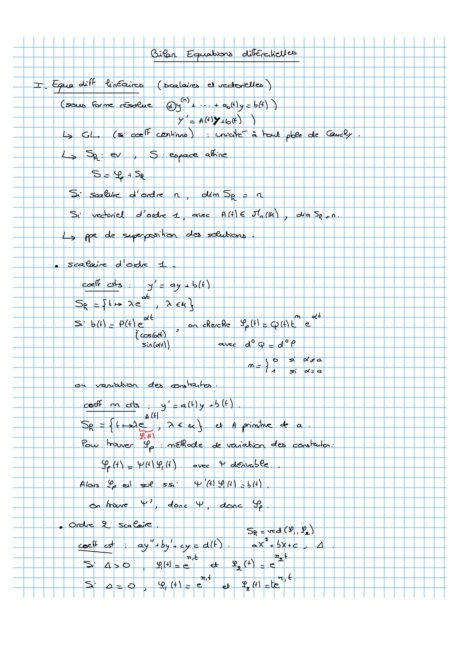 Bilan Equations différentielles
I- Equa diff linéaires (scalaires et vectorielles)
(sous forme résolue ①y⁽ⁿ⁾ + ... + a₀(t)y = b(t))
Y' = A(t)Y + b(t))
↳ CL (si coeff continus) : unicité à tout pble de Cauchy.
↳ S_H : ev , S : espace affine
S = φ_p + S_H
Si scalaire d'ordre n, dim S_H = n
Si vectoriel d'ordre 1, avec A(t) ∈ M_n(K), dim S_H = n.
↳ ppe de superposition des solutions.
• scalaire d'ordre 1.
coeff cts : y' = ay + b(t)
S_H = {t ↦ λe^{at}, λ ∈ K}
Si b(t) = P(t)e^{αt}, on cherche φ_p(t) = Q(t)t^m e^{αt}
{cos(αt) sin(αt)} avec d°Q = d°P
m = { 0 si α≠a
1 si α=a
ou variation des constantes.
coeff m cts : y' = a(t)y + b(t).
S_H = {t ↦ λe^{A(t)}, λ ∈ K} et A primitive de a.
φ₁(t)
Pour trouver φ_p : méthode de variation des constantes.
φ_p(t) = ψ(t)φ₁(t) avec ψ dérivable.
Alors φ_p est sol ssi ψ'(t)φ₁(t) = b(t).
on trouve ψ', donc ψ, donc φ_p
• Ordre 2 scalaire. S_H = vect(φ₁, φ₂)
coeff cst : ay'' + by' + cy = d(t). aX² + bX + c, Δ.
Si Δ > 0, φ₁(t) = e^{r₁t} et φ₂(t) = e^{r₂t}
Si Δ = 0, φ₁(t) = e^{r₁t} et φ₂(t) = te^{r₁t}